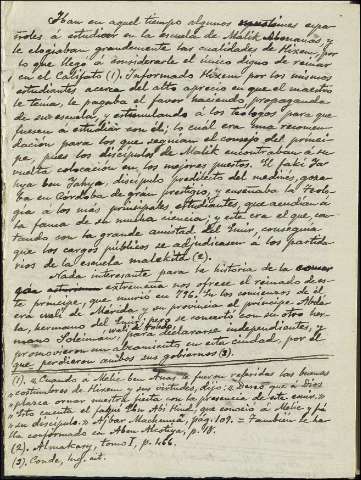 Iban en aquel tiempo algunos espa-
ñoles á estudiar en la escuela de Malik Abenanas, y
le elogiaban grandemente las cualidades de Hixem, por
lo que llegó á considerarle el único digno de reinar
en el Califato (1). Informado Hixem por los mismos
estudiantes acerca del alto aprecio en que el maestro
le tenía, le pagaba el favor haciendo propaganda
de su escuela, y estimulando á los teólogos para que
fuesen á estudiar con él; lo cual era una recomen-
dación para los que seguían el consejo del prínci-
pe, pues los discípulos de Malik encontraban á su
vuelta colocación en los mejores puestos. El faki Ya-
hya ben Yahya, discípulo predilecto del medinés, goza-
ba en Córdoba de gran prestigio, y enseñaba la Teolo-
gía á los más principales estudiantes, que acudían á
la fama de su mucha ciencia; y este era el que, con-
tando con la grande amistad del Emir, conseguía
que los cargos públicos se adjudicasen á los partida-
rios de la escuela malekita (2).
Nada interesante para la historia de la
extremeña nos ofrece el reinado de es-
te príncipe, que murió en 796. En los comienzos de él
era walí de Mérida y su provincia el príncipe Abda-
la, hermano del Emir; pero se concertó con su otro her-
walí de Toledo
mano Soleiman, para declararse independientes, y
promovieron un alzamiento en esta ciudad, por el
que perdieron ambos sus gobiernos (3).
(1). "Cuando á Melic ben Anas le fueron referidas las buenas
"costumbres de Hixem y sus virtudes, dijo: "Deseo que á Dios
"plazca ornar nuestra fiesta con la presencia de este emir."
"Esto cuenta el faquí Ibn Abi Hind, que conoció á Melic y fué
"su discípulo." Ajbar Machmuá, pág. 109. = También se ha-
lla conformado en Aben Alcotiya, p. 48.
(2). Almakary, tomo I, p. 466.
(3). Conde, lug. cit.